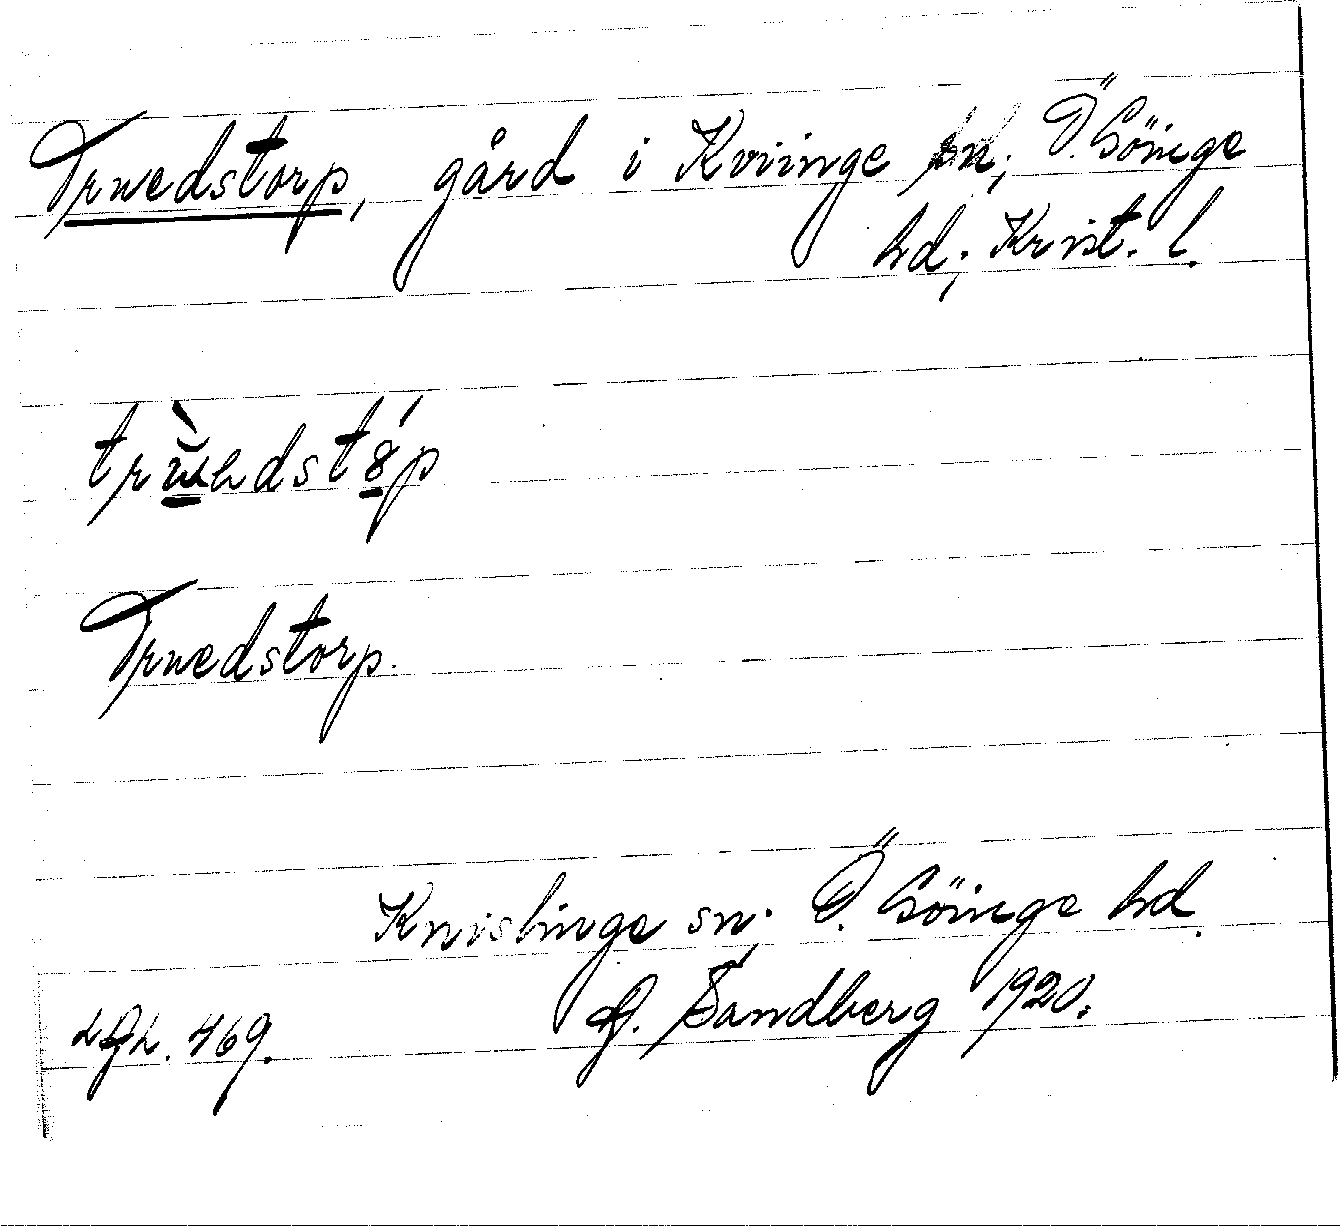 Truedstorp, gård i Kviinge sn; Ö. Göinge
hd; Krist. l.
Truedstorp.
Knislinge sn; Ö. Göinge hd.
Sandberg 1920.
469.